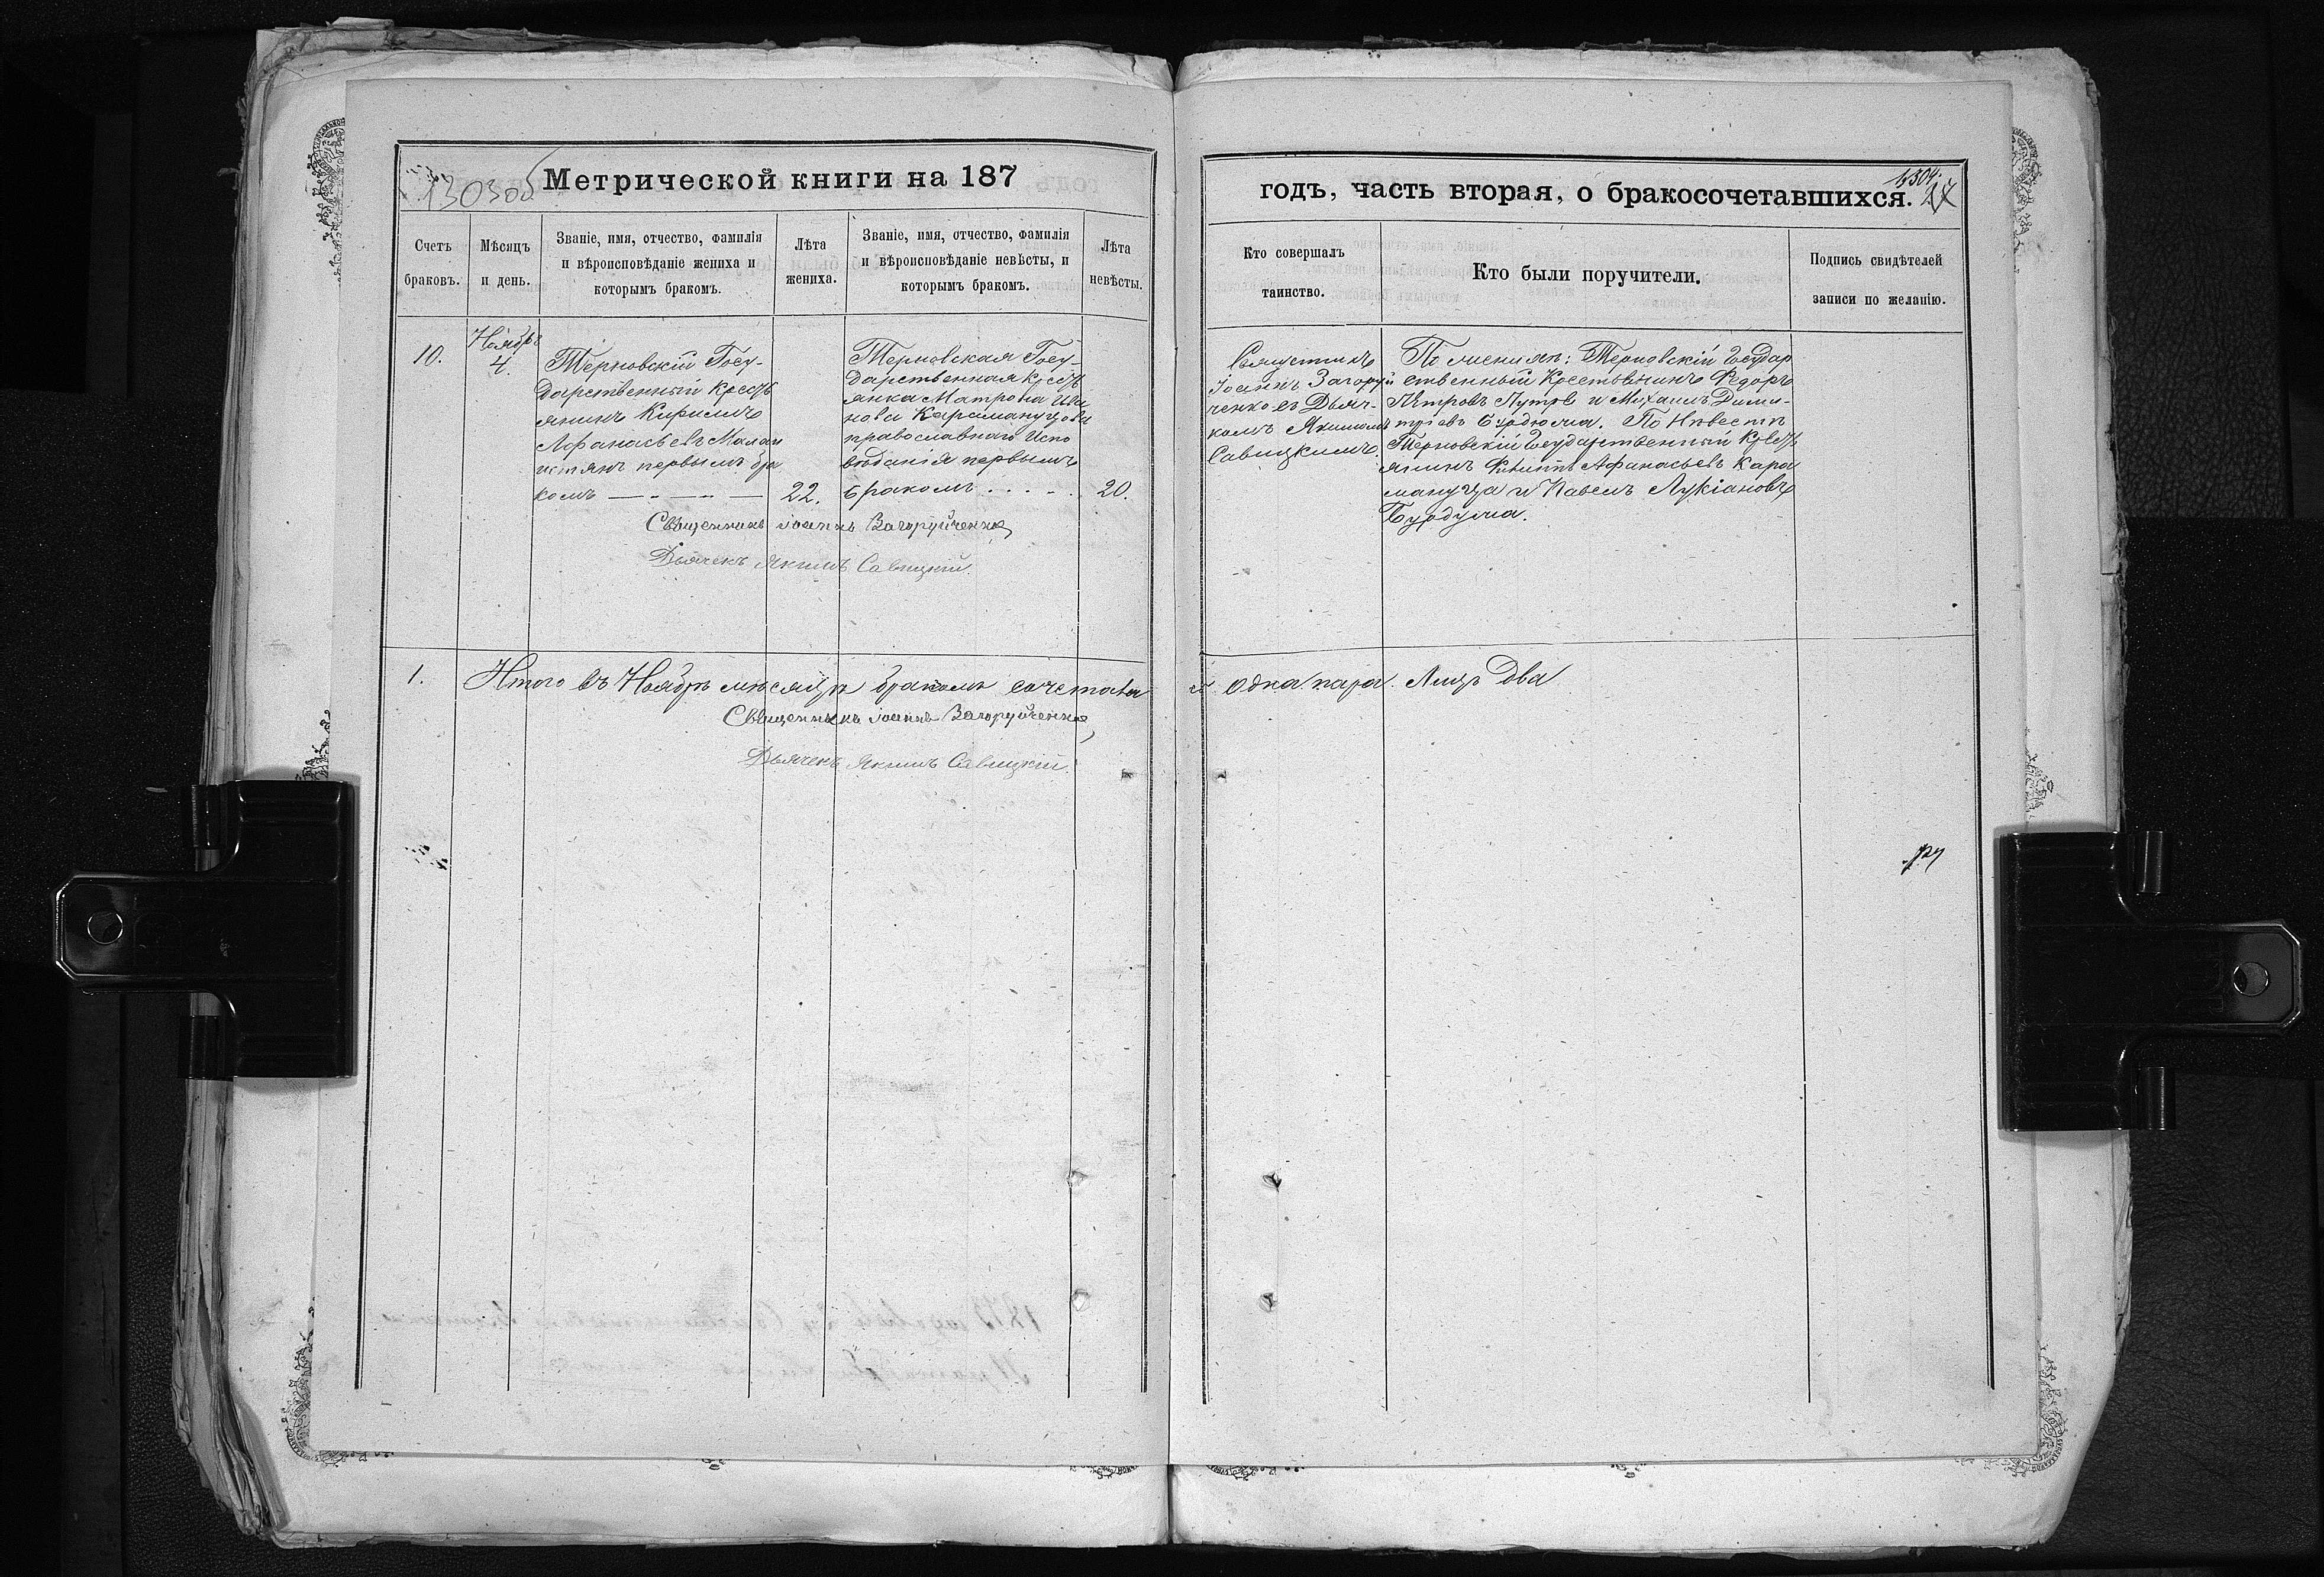 1303об
Метрической книги на 187
Счетъ браковъ.
Мѣсяцъ и день.
Званіе, имя, отчество, фамилія и вѣроисповѣданіе жениха и которымъ бракомъ.
Лѣта жениха.
Званіе, имя, отчество, фамилія и вѣроисповѣданіе невѣсты, и которымъ бракомъ.
Лѣта невѣсты.
10.
Ноябрь
4.
Терновскій Госу-
дарственный Крестъ
янинъ Кирилъ
Афанасьевъ Малаи
истянъ первымъ бра
комъ
22.
Терновская Госу-
дарственная крестъ
янка Матрона Ива
нова Карамануцова
православнаго Испо
вѣданія первымъ
бракомъ . . . .
20.
Священникъ Іоаннъ Загоруйченко
Дьячекъ Якимъ Савицкій.
1.
Итого въ Ноябрѣ мѣсяцѣ бракомъ сочетова
Священникъ Іоаннъ Загоруйченко
Дьячекъ Якимъ Савицкій.
годъ, часть вторая, о бракосочетавшихся.
1304.
Кто совершалъ таинство.
Кто были поручители.
Подпись свидѣтелей записи по желанію.
Священникъ
Іоаннъ Загоруй
ченко съ Дьяч-
комъ Якимомъ
Савицкимъ.
По женихѣ: Терновскій Государ
ственный Крестьянинъ Федоръ
Петровъ и Михаилъ Дими-
тріевъ Бурдюжа. По Невестѣ
Терновскій Государственный Крестъ
янинъ Филиппъ Афанасьевъ Кара
мануца и Павелъ Лукіановъ
одна пара. Лицъ Два